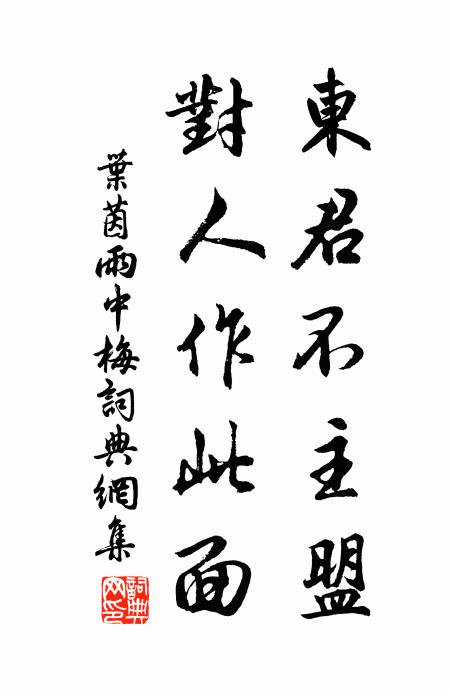 東君不主盟
對人作此面
葉茵雨中梅詞典網集
詞典網印